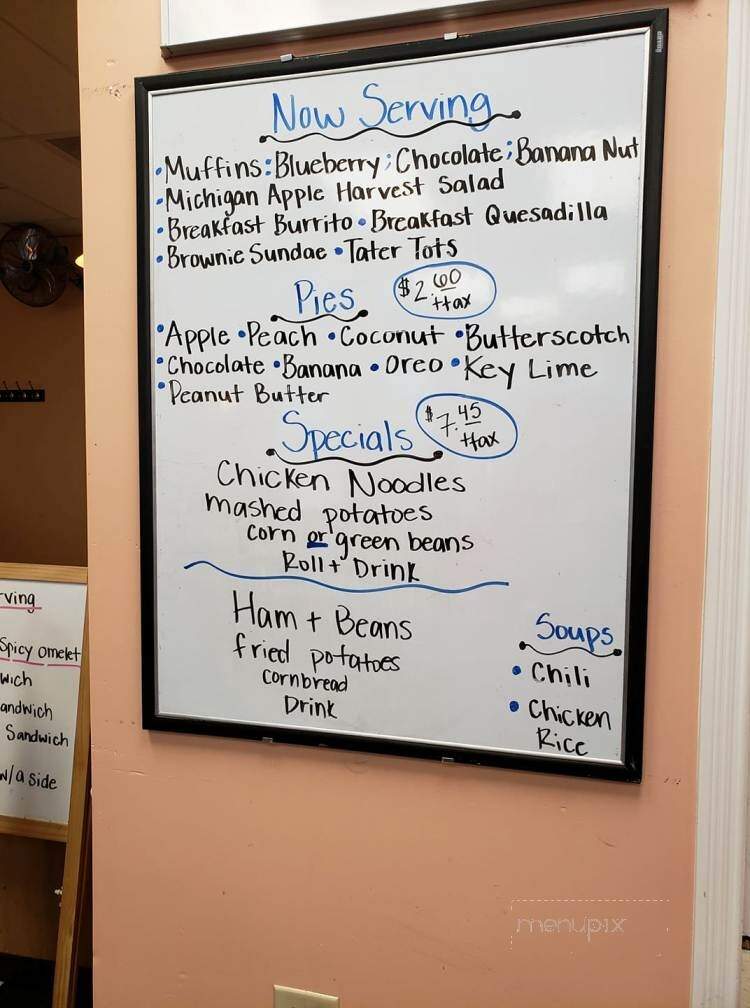 Now Serving
•Muffins: Blueberry; Chocolate; Banana Nut
•Michigan Apple Harvest Salad
•Breakfast Burrito •Breakfast Quesadilla
•Brownie Sundae •Tater Tots
Pies $2.60 +tax
•Apple •Peach •Coconut •Butterscotch
•Chocolate •Banana •Oreo •Key Lime
•Peanut Butter
Specials $7.45 +tax
Chicken Noodles
mashed potatoes
corn or green beans
Roll + Drink
Ham + Beans
fried potatoes
cornbread
Drink
Soups
• Chili
• Chicken
Rice
rving
Spicy omelet
wich
andwich
Sandwich
w/a side
menupix